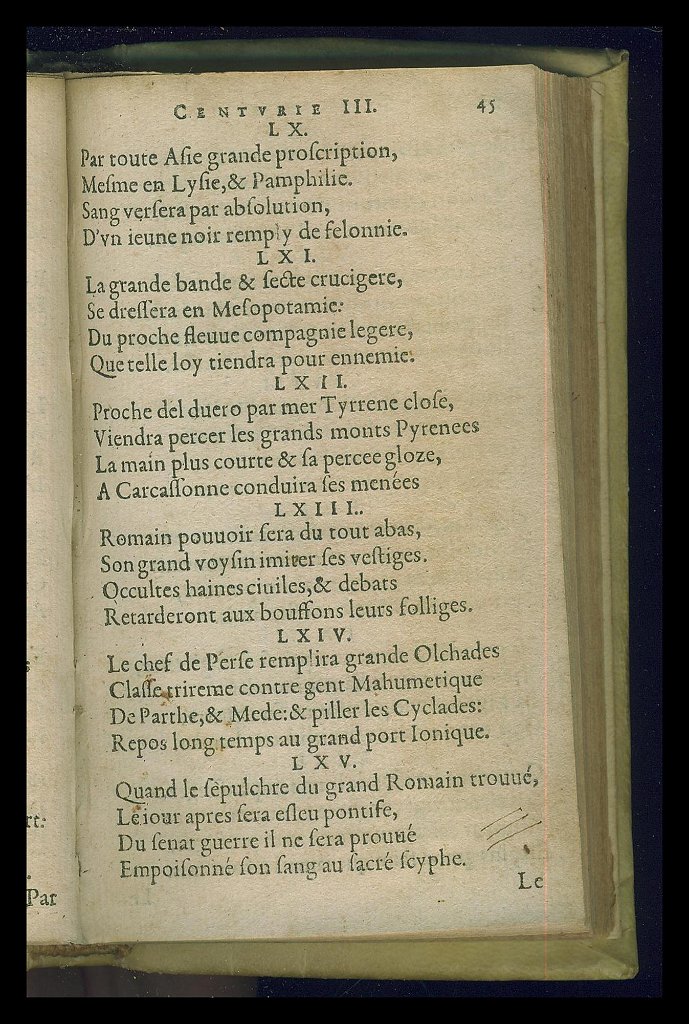 CENTVRIE III. 45
LX.
Par toute Aſie grande proſcription,
Meſme en Lyſie,& Pamphilie.
Sang verſera par abſolution,
D'vn ieune noir remply de felonnie.
LXI.
La grande bande & ſecte crucigere,
Se dreſſera en Meſopotamie:
Du proche fleuue compagnie legere,
Que telle loy tiendra pour ennemie.
LXII.
Proche del duero par mer Tyrrene cloſe,
Viendra percer les grands monts Pyrenees
La main plus courte & ſa percee gloze,
A Carcaſſonne conduira ſes menées
LXIII..
Romain pouuoir ſera du tout abas,
Son grand voyſin imiter ſes veſtiges.
Occultes haines ciuiles,& debats
Retarderont aux bouffons leurs folliges.
LXIV.
Le chef de Perſe remplira grande Olchades
Claſſe trireme contre gent Mahumetique
De Parthe,& Mede:& piller les Cyclades:
Repos long temps au grand port Ionique.
LXV.
Quand le ſepulchre du grand Romain trouué,
Le iour apres ſera eſleu pontife,
Du ſenat guerre il ne ſera prouué
Empoiſonné ſon ſang au ſacré ſcyphe.
Le
rt:
Par